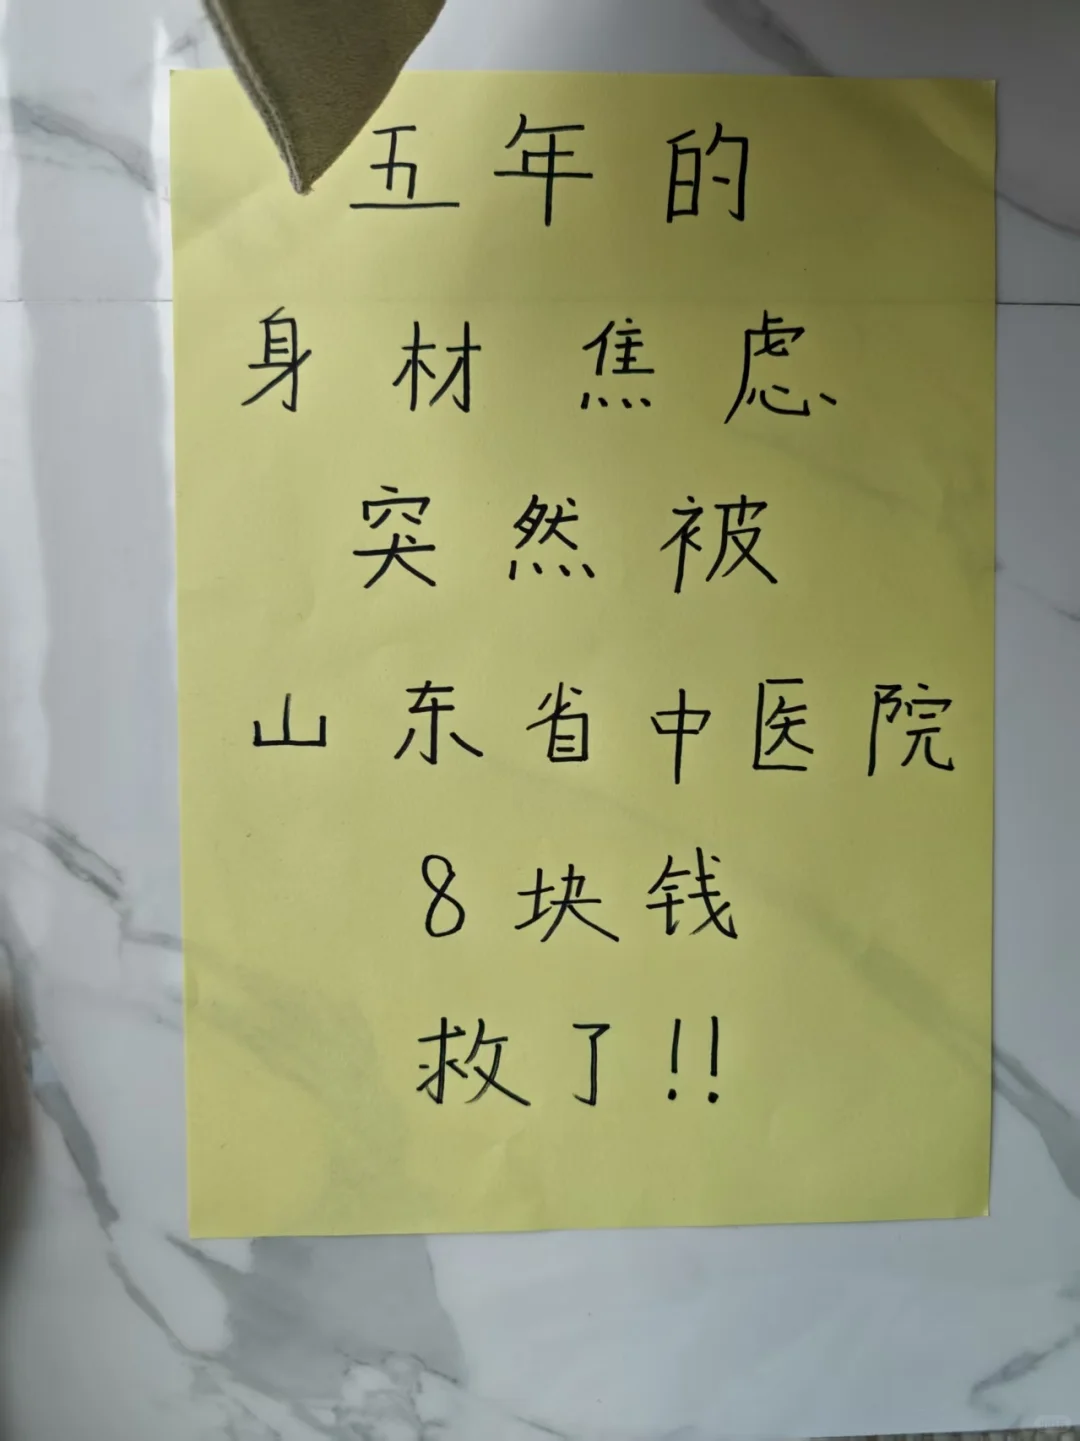 五年的
身材焦虑
突然被
山东省中医院
8块钱
救了!!